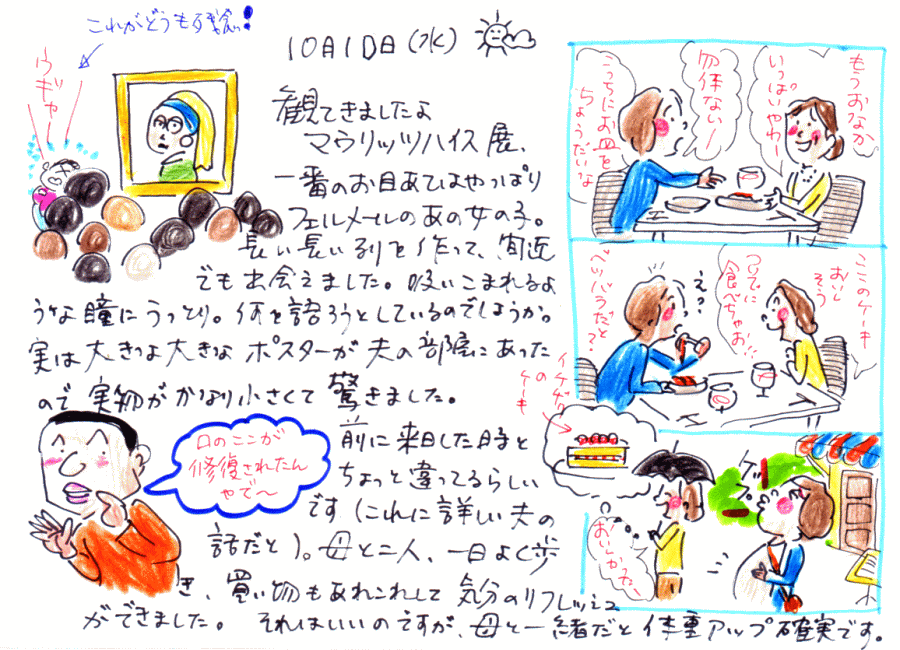 これがどうもすみません!
ウギャー
10月10日(水)
観てきましたよ
マウリッツハイス展、
一番のお目あてはやっぱり
フェルメールのあの女の子。
長い長い列を作って、間近
でも出会えました。吸いこまれるよ
うな瞳にうっとり。何を語ろうとしているのでしょうか。
実は大きな大きなポスターが夫の部屋にあった
ので実物がかなり小さくて驚きました。
口のここが
修復されたん
やで〜
前に来日した時と
ちょっと違ってるらしい
です(これに詳しい夫の
話だと)。母と二人、一日よく歩
き、買い物もあれこれして気分のリフレッシュ
ができました。それはいいのですが、母と一緒だと体重アップ確実です。
もうおなか
いっぱいやわー
勿体ない!
こっちにお皿を
ちょうだいな
ここのケーキ
おいしそう
ついでに
食べちゃお!!
えっ?
ベツバラだと?
イチゴ
の
ケーキ
おいしかったー
ゲップ